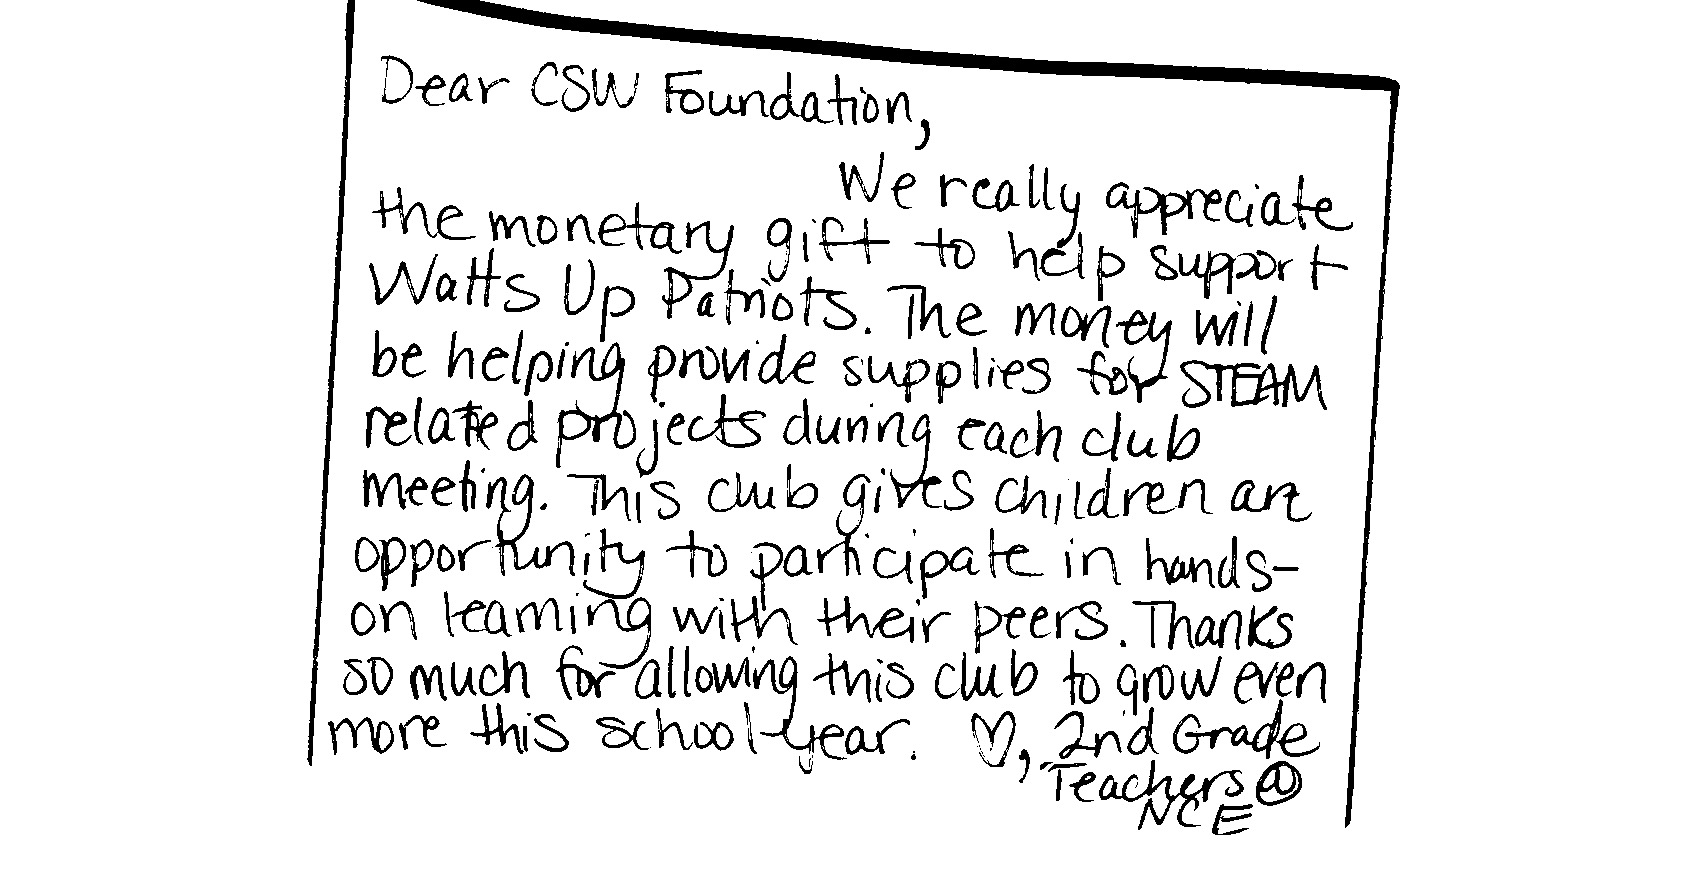 Dear CSW Foundation,
We really appreciate
the monetary gift to help support
Watts Up Patriots. The money will
be helping provide supplies for STEAM
related projects during each club
meeting. This club gives children an
opportunity to participate in hands-
on learning with their peers. Thanks
so much for allowing this club to grow even
more this school year. ♡, 2nd Grade
Teachers @
NCE